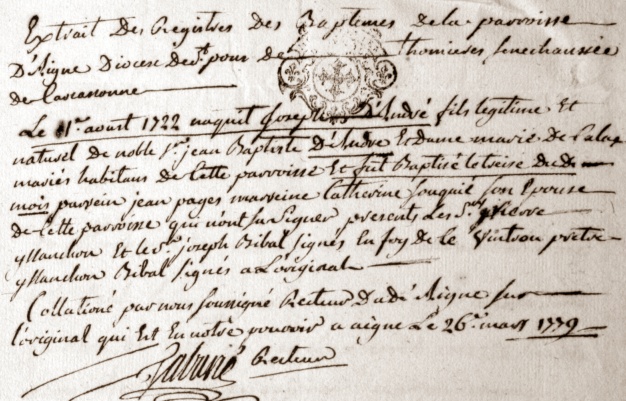 Extrait Des Registres Des Baptemes De la parroisse
D'Aigne Diocese de St pour de Thomieres senechaussée
de Carcassonne
Le 1er aoust 1722 naquit Joseph D'André fils legitime Et
naturel de noble Sr jean Baptiste D'Andre Et Dame marie De
mariés habitans de Cette parroisse Et fut Baptisé le treise du dt
mois parrein jean pages marreine Catherine fouquié son Epouse
de Cette parroisse qui n'ont su signer presents Les Srs pierre
ymanchon Et le Sr joseph Bibal signés En foy de Ce pretre
ymanchon Bibal signés a L'original
Collationé par nous soussigné Recteur Dudé Aigne sur
l'original qui Est En notre pouvoir a aigne Le 26e mars 1779
Recteur